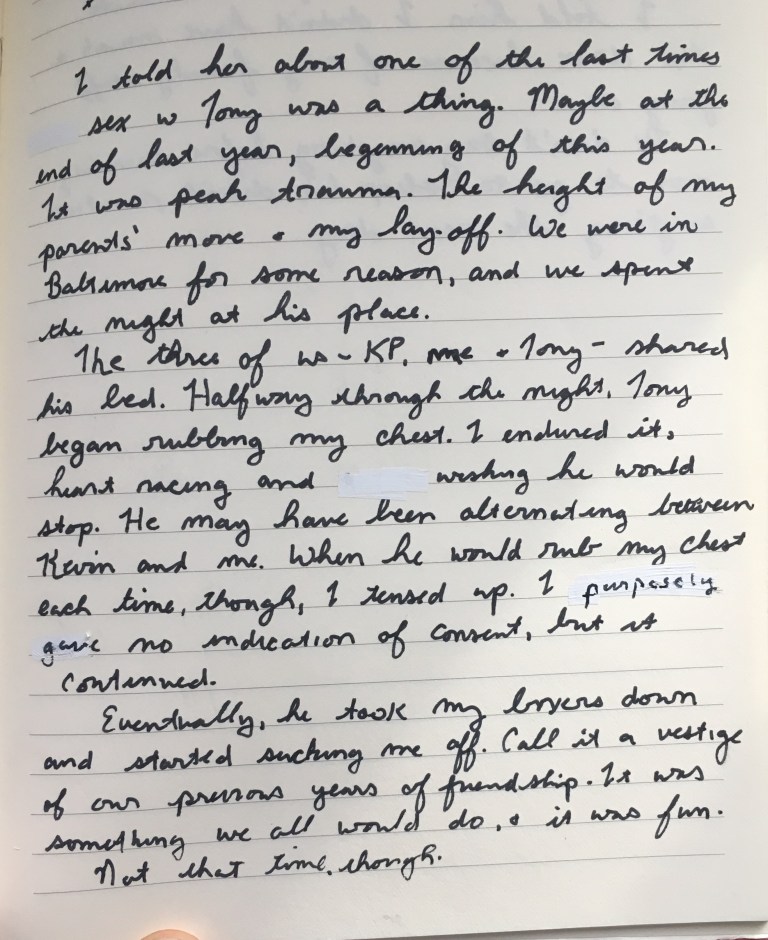 I told her about one of the last times
sex w Tony was a thing. Maybe at the
end of last year, begenning of this year.
It was peak trauma. The height of my
parents' move + my lay-off. We were in
Baltimore for some reason, and we spent
the night at his place.
The three of us - KP, me + Tony - shared
his bed. Halfway through the night, Tony
began rubbing my chest. I endured it,
heart racing and wishing he would
stop. He may have been alternating between
Kevin and me. When he would rub my chest
each time, though, I tensed up. I purposely
gave no indication of consent, but it
continued.
Eventually, he took my boxers down
and started sucking me off. Call it a vestige
of our previous years of friendship. It was
something we all would do, + it was fun.
Not that time, though.